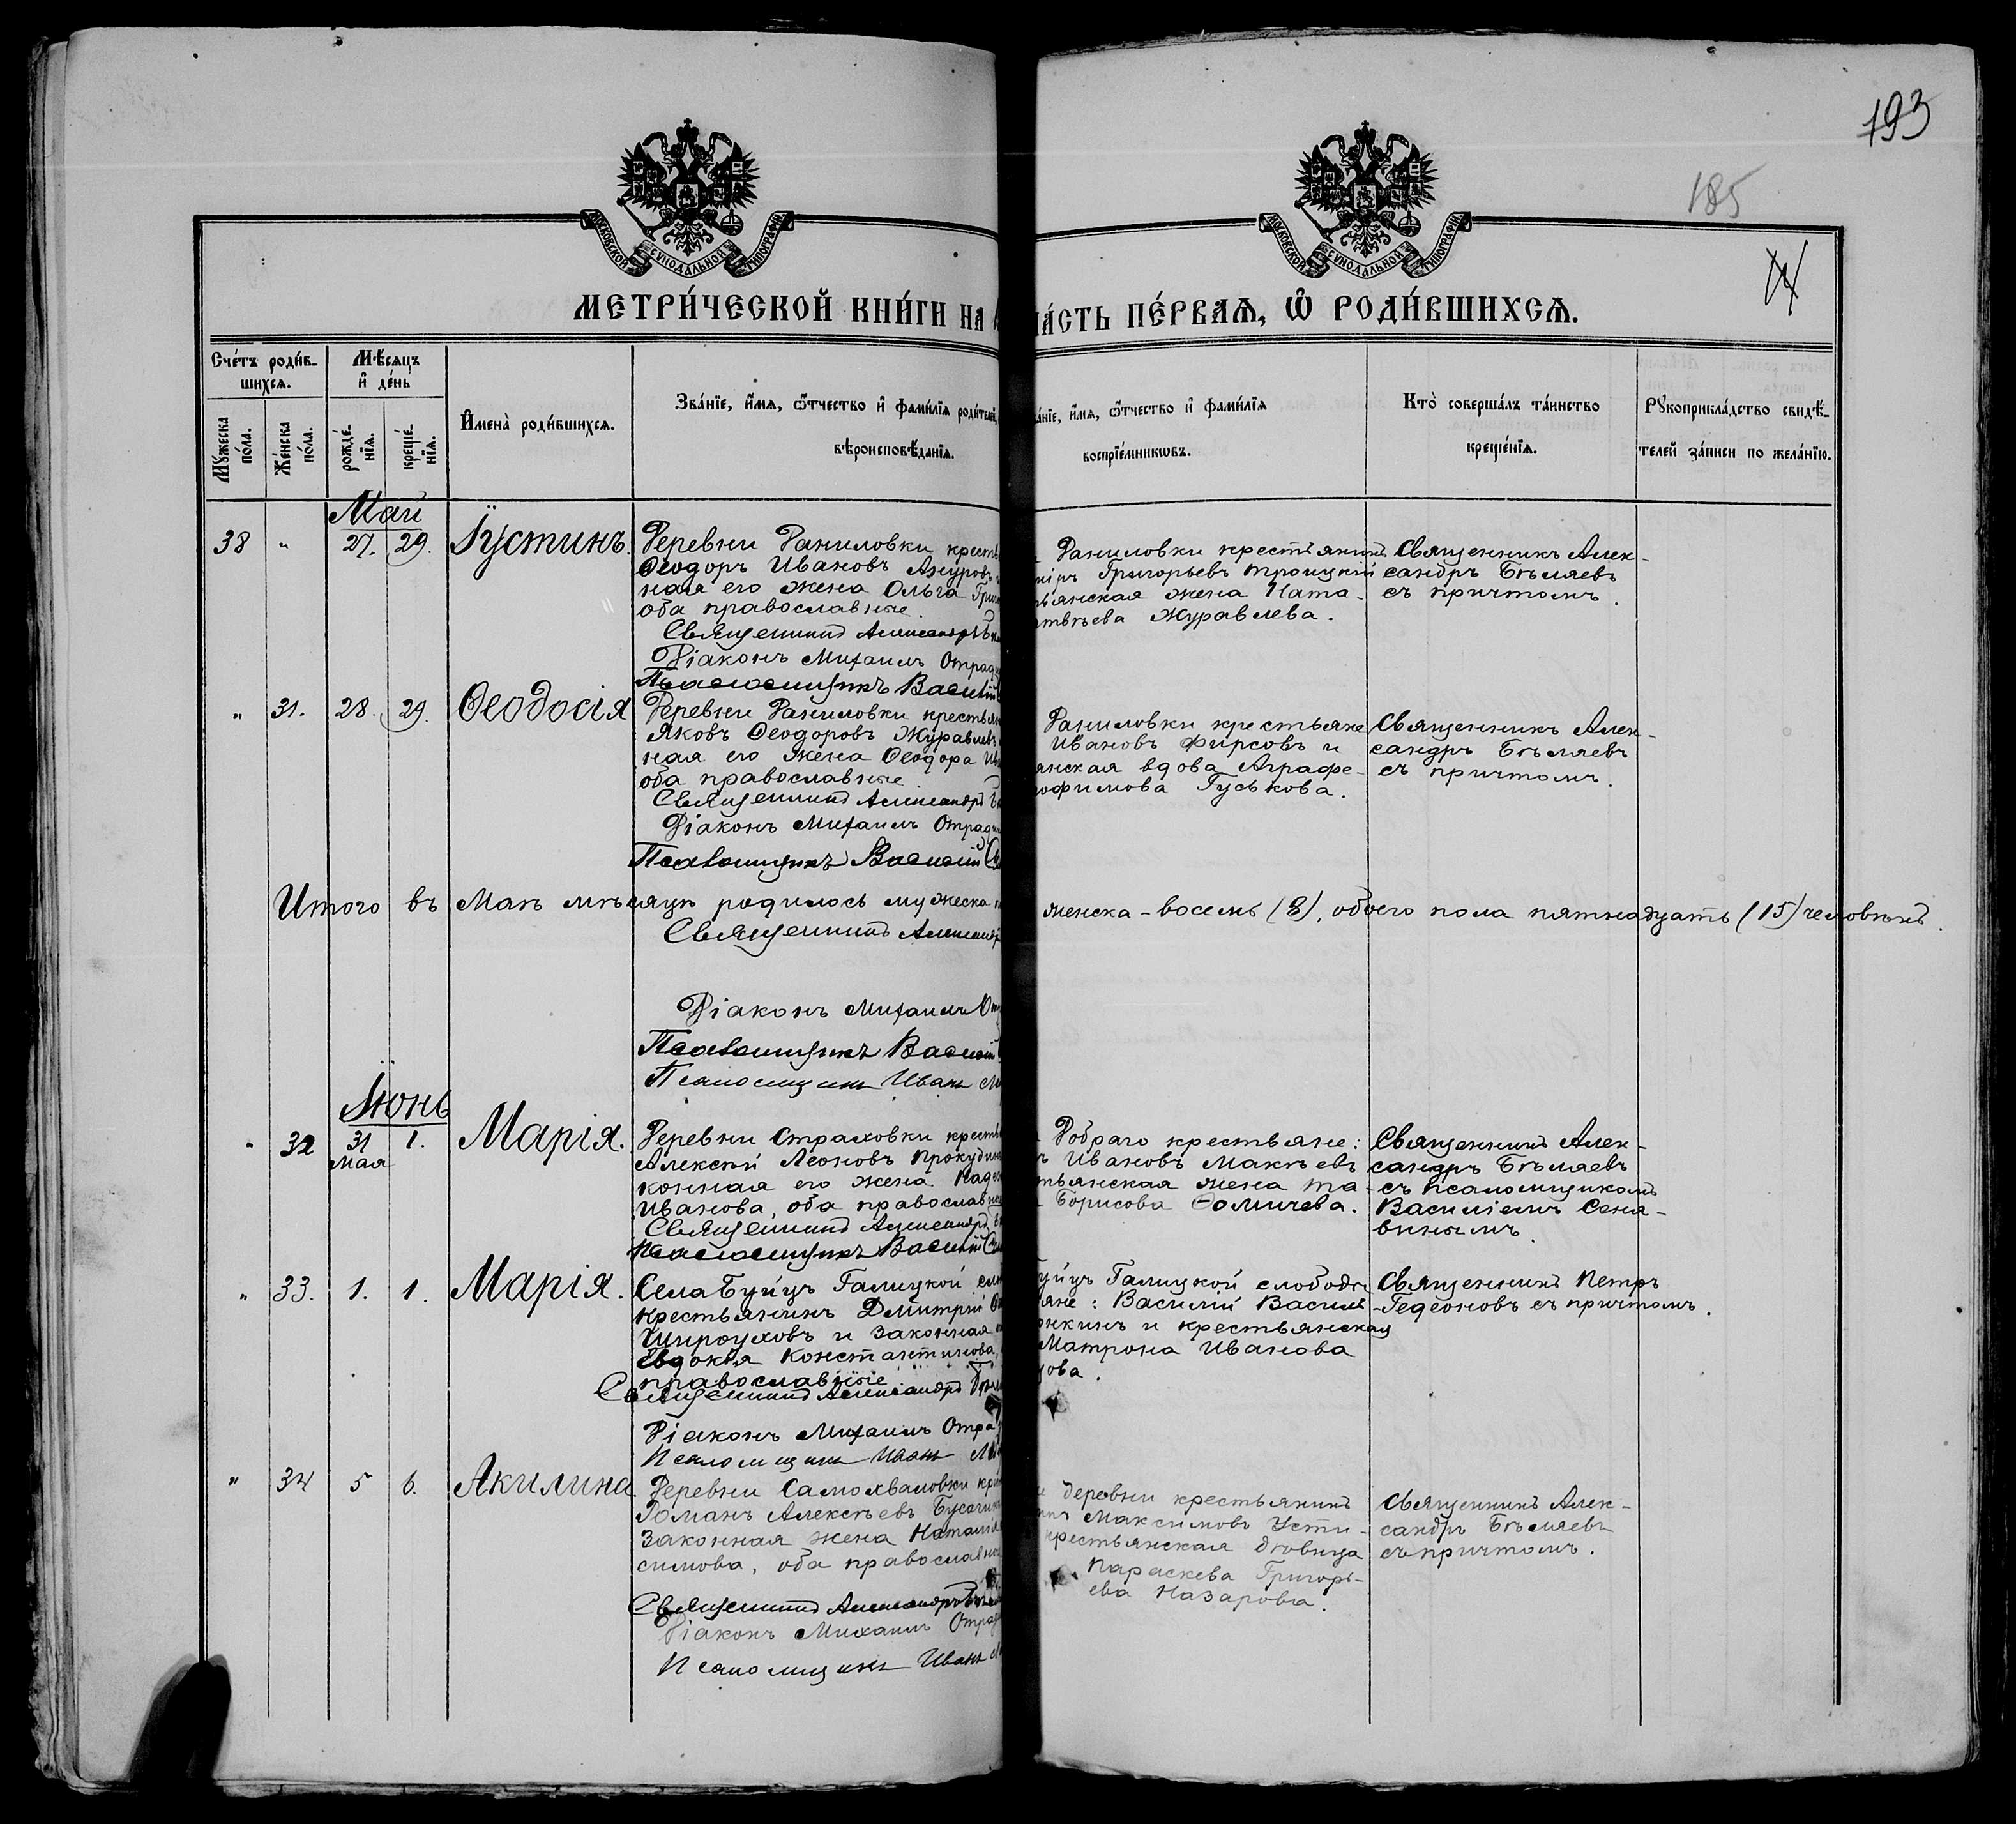 193
185
МОСКОВСКОЙ СѴНОДАЛЬНОЙ ТИПОГРАФІИ
МОСКОВСКОЙ СѴНОДАЛЬНОЙ ТИПОГРАФІИ
МЕТРИ́ЧЕСКОЙ КНИ́ГИ НА
ЧА́СТЬ ПЕ́РВАѦ, Ѿ РОДИ́ВШИХСѦ.
Сче́тъ роди́в-
шихсѧ.
Мѣ́сѧцъ
и҆ де́нь
Мꙋ́жеска
по́ла.
Же́нска
по́ла.
рожде́-
нїѧ.
креще́-
нїѧ.
И҆мена̀ роди́вшихсѧ.
Зва́нїе, и҆́мѧ, ѻ҆́тчество и҆ фами́лїѧ роди́телей,
вѣроисповѣ́данїѧ.
и҆́мѧ, ѻ҆́тчество и҆ фами́лїѧ
воспрїе́мникѡвъ.
Кто̀ соверша́лъ та́инство
креще́нїѧ.
Рꙋкоприкла́дство свидѣ́-
телей за́писи по жела́нїю.
Май
38 " 27. 29. Іустинъ. Деревни Даниловки кресть
Ѳеодоръ Ивановъ Ажуровъ
ная его жена Ольга Григ
оба православные.
Священникъ Александръ
Діаконъ Михаилъ Отрад
Псаломщикъ Василій
Даниловки крестьянинъ
Григорьевъ Троицкій
янская жена Ната-
твѣева Журавлева.
Священникъ Алек-
сандръ Бѣляевъ
съ причтомъ.
" 31. 28. 29. Ѳеодосія Деревни Даниловки крестьян
Яковъ Ѳеодоровъ Журавлевъ
ная его жена Ѳеодора Ив
оба православные
Священникъ Александръ
Діаконъ Михаилъ Отрад
Псаломщикъ Василій
Даниловки крестьяне
Ивановъ Фирсовъ и
янская вдова Аграфе-
офимова Гуськова.
Священникъ Алек-
сандръ Бѣляевъ
съ причтомъ.
Итого въ Маѣ мѣсяцѣ родилось мужеска
женска - восемь (8), обоего пола пятнадцать (15) человѣкъ.
Священникъ Александр
Діаконъ Михаилъ От
Псаломщикъ Василій
Псаломщикъ Иванъ
Іюнь
" 32 31 Мая 1. Марія. Деревни Страховки кресть
Алексѣй Леоновъ Прокудин
конная его жена Наде
Иванова, оба православные
Священникъ Александръ
Псаломщикъ Василій
Добраго крестьяне:
Ивановъ Макѣевъ
тьянская жена Та-
Борисова Ѳомичева.
Священникъ Алек-
сандръ Бѣляевъ
съ псаломщикомъ
Василіемъ Сеня-
винымъ.
" 33. 1. 1. Марія. Села Буйцъ Галицкой сло
крестьянинъ Дмитрій
Широуховъ и законная
Евдокія Константинова,
православные
Священникъ Александръ
Діаконъ Михаилъ Отра
Псаломщикъ Иванъ
Буйцъ Галицкой слободы
яне: Василій Василь-
нкинъ и крестьянская
Матрона Иванова
ова.
Священникъ Петръ
Гедеоновъ съ причтомъ.
" 34 5 6. Акилина Деревни Самохваловки кре
Романъ Алексѣевъ Бусачин
законная жена Наталія
симова, оба православные
Священникъ Александръ
Діаконъ Михаилъ Отрад
Псаломщикъ Иванъ
деревни крестьянинъ
Максимовъ Усти-
крестьянская дѣвица
Параскева Григорь-
ева Назарова.
Священникъ Алек-
сандръ Бѣляевъ
съ причтомъ.